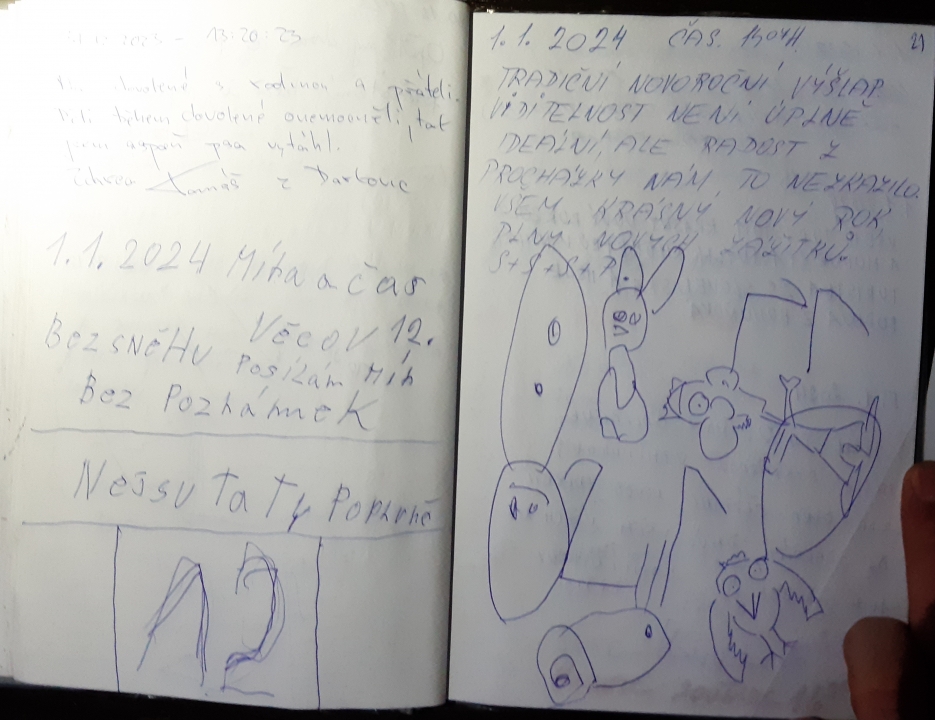 2023 - 13:20:23
dovolené s rodinou a přáteli.
během dovolené onemocněli, tak
jsem aspoň psa vytáhl.
Tomáš z Darkovic
1.1. 2024 Míha a čas
Věcov 12.
Bez sněhu Posílám
Bez Poznámek
Nejsu Ta Ty Poprvé
12
1.1. 2024 ČAS.
21
TRADIČNÍ NOVOROČNÍ VÝŠLAP.
VIDITELNOST NENÍ ÚPLNĚ
IDEÁLNÍ, ALE RADOST Z
PROCHÁZKY NÁM TO NEZKAZILO.
VŠEM KRÁSNÝ NOVÝ ROK
PLNÝ NOVÝCH ZÁŽITKŮ.
S+S+S+P